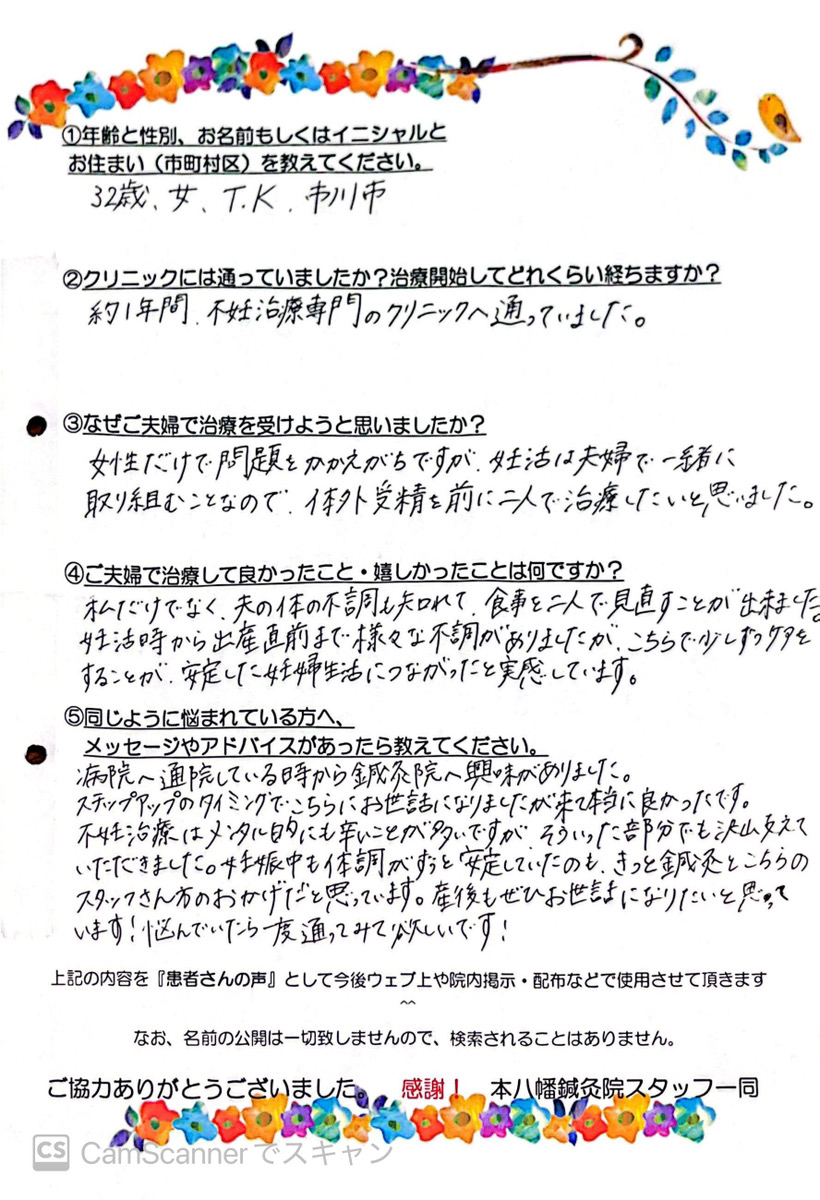 ①年齢と性別、お名前もしくはイニシャルと
お住まい（市町村区）を教えてください。
32歳、女、T.K、市川市
②クリニックには通っていましたか？治療開始してどれくらい経ちますか？
約1年間、不妊治療専門のクリニックへ通っていました。
③なぜご夫婦で治療を受けようと思いましたか？
女性だけで問題をかかえがちですが、妊活は夫婦で一緒に
取り組むことなので、体外受精を前に二人で治療したいと思いました。
④ご夫婦で治療して良かったこと・嬉しかったことは何ですか？
私だけでなく、夫の体の不調も知れて、食事を二人で見直すことが出来ました。
妊活時から出産直前まで様々な不調がありましたが、こちらで少しずつケアを
することが、安定した妊婦生活につながったと実感しています。
⑤同じように悩まれている方へ、
メッセージやアドバイスがあったら教えてください。
病院へ通院している時から鍼灸院へ興味がありました。
ステップアップのタイミングでこちらにお世話になりましたが来て本当に良かったです。
不妊治療はメンタル的にも辛いことが多いですが、そういった部分でも沢山支えて
いただきました。妊娠中も体調がずっと安定していたのも、きっと鍼灸とこちらの
スタッフさん方のおかげだと思っています。産後もぜひお世話になりたいと思って
います！悩んでいたら一度通ってみて欲しいです！
上記の内容を『患者さんの声』として今後ウェブ上や院内掲示・配布などで使用させて頂きます
^^
なお、名前の公開は一切致しませんので、検索されることはありません。
ご協力ありがとうございました。 感謝！ 本八幡鍼灸院スタッフ一同
CS CamScanner でスキャン